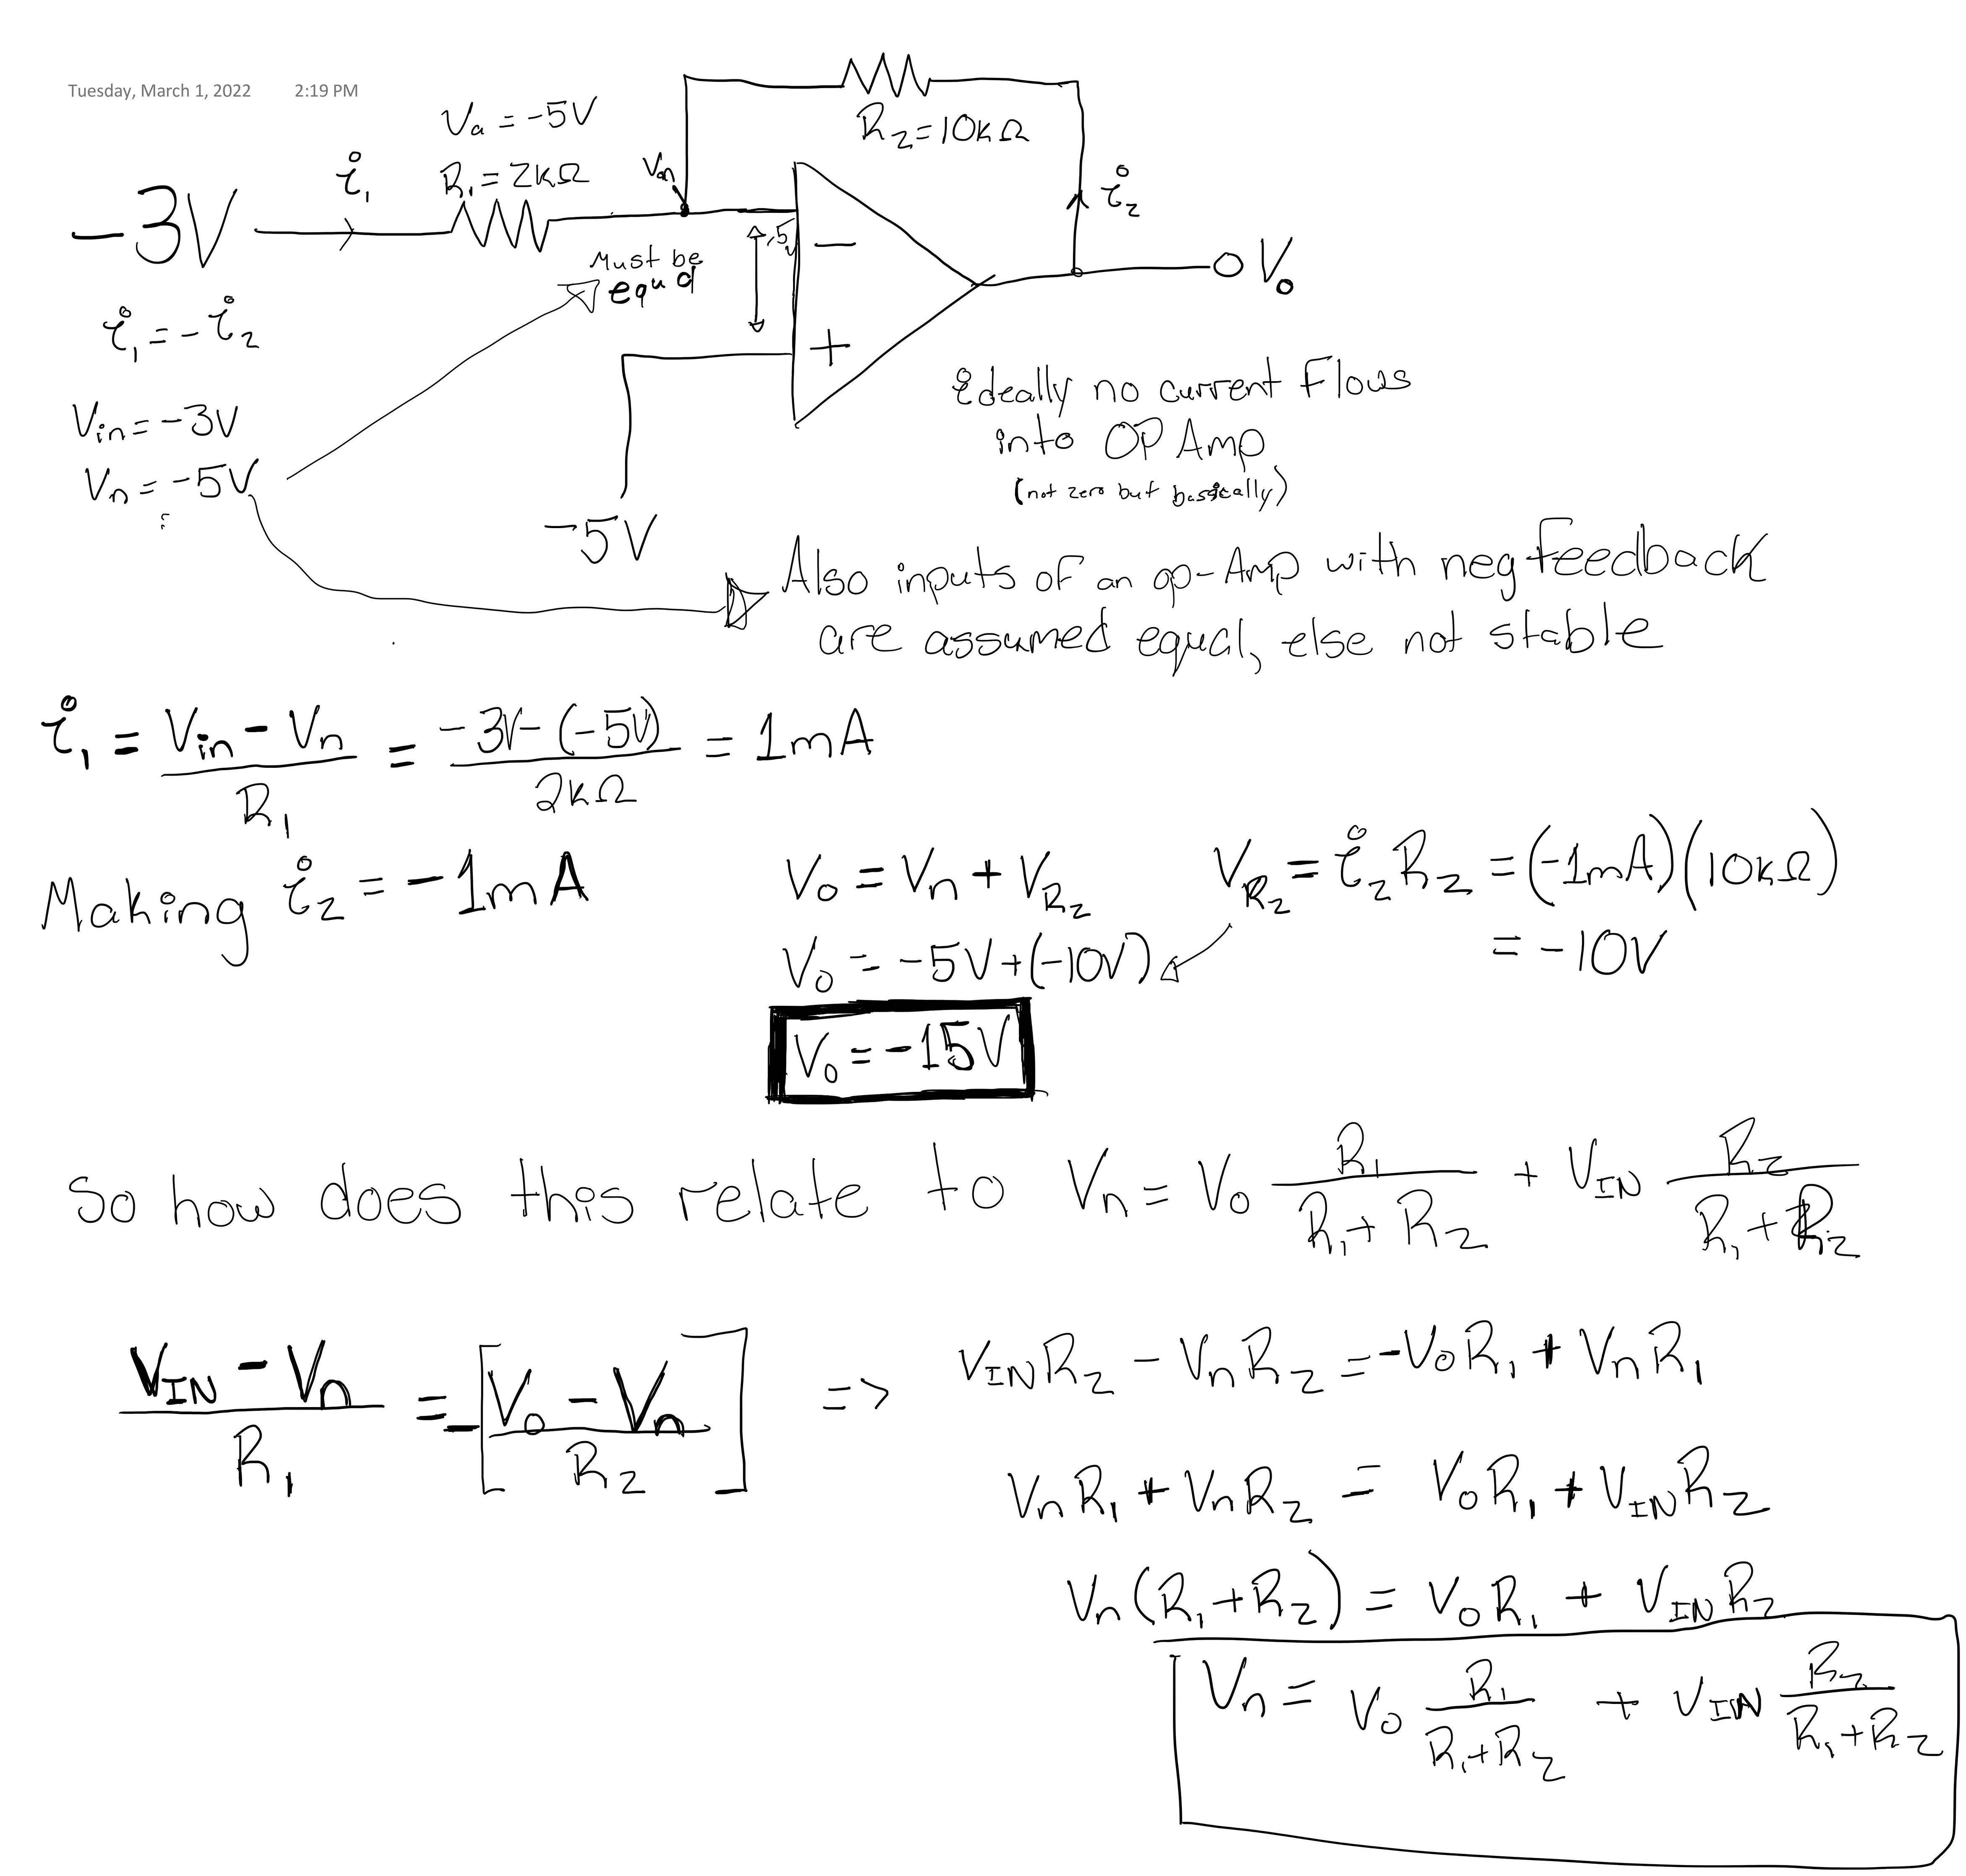 Tuesday, March 1, 2022 2:19 PM
Va = -5V
R₁ = 2kΩ
R₂ = 10kΩ
-3V
i₁
i₂
Vn
Must be
equal
-
+
V₀
i₁ = - i₂
Vin = -3V
Vn = -5V
-5V
ideally no current Flows
into OP Amp
(not zero but basically)
Also inputs of an op-Amp with neg feedback
are assumed equal, else not stable
i₁ = (Vin - Vn)/R₁ = (-3V - (-5V))/2kΩ = 1mA
Making i₂ = -1mA
V₀ = Vn + V_R₂
V_R₂ = i₂R₂ = (-1mA)(10kΩ)
= -10V
V₀ = -5V + (-10V)
V₀ = -15V
So how does this relate to Vn = V₀ R₁/(R₁ + R₂) + V_IN R₂/(R₁ + R₂)
(V_IN - Vn)/R₁ = -[(V₀ - Vn)/R₂] =>
V_IN R₂ - VnR₂ = -V₀R₁ + VnR₁
VnR₁ + VnR₂ = V₀R₁ + V_IN R₂
Vn(R₁+R₂) = V₀R₁ + V_IN R₂
Vn = V₀ R₁/(R₁+R₂) + V_IN R₂/(R₁+R₂)